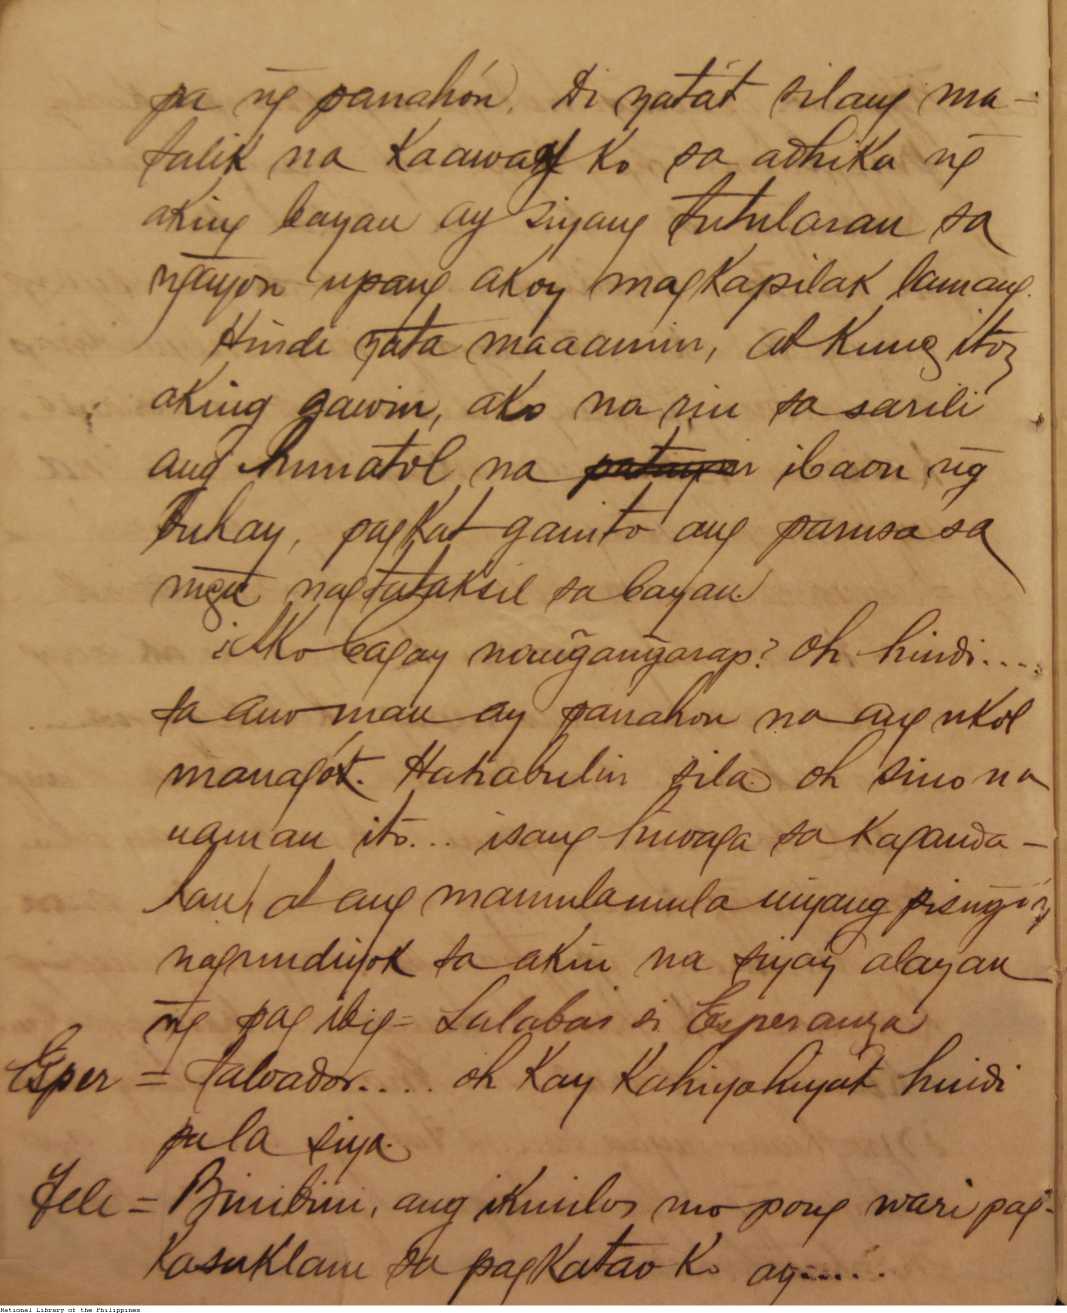 pa n͠g panahón. Di yatát silang ma-
talik na Kaaway Ko sa adhika n͠g
aking bayan ay siyang tutularan sa
n͠gayon upang akoy magkapilak lamang.
Hindi yata maaamin, at Kung itoy
aking gawin, ako na rin sa sarili
ang humatol na ibaon n͠g
buhay, pagkat ganito ang parusa sa
mg̃a nagtataksil sa bayan
¿Ako bagay nan͠gan͠garap? Oh hindi....
sa ano man ay panahon na ang ukol
managót. Hahabulin sila. oh sino na
naman itó... isang hiwaga sa Kaganda-
han, at ang mamulamula niyang pisn͠gi'y
nagmudyok sa akin na siyay alayan
n͠g pag ibig = Lalabas si Esperanza
Esper = Salvador.... oh Kay Kahiyahiyat hindi
pala siya.
Fele = Binibini, ang ikinilos mo pong wari pag-
Kasuklam sa pagkatao Ko ay.....
National Library of the Philippines